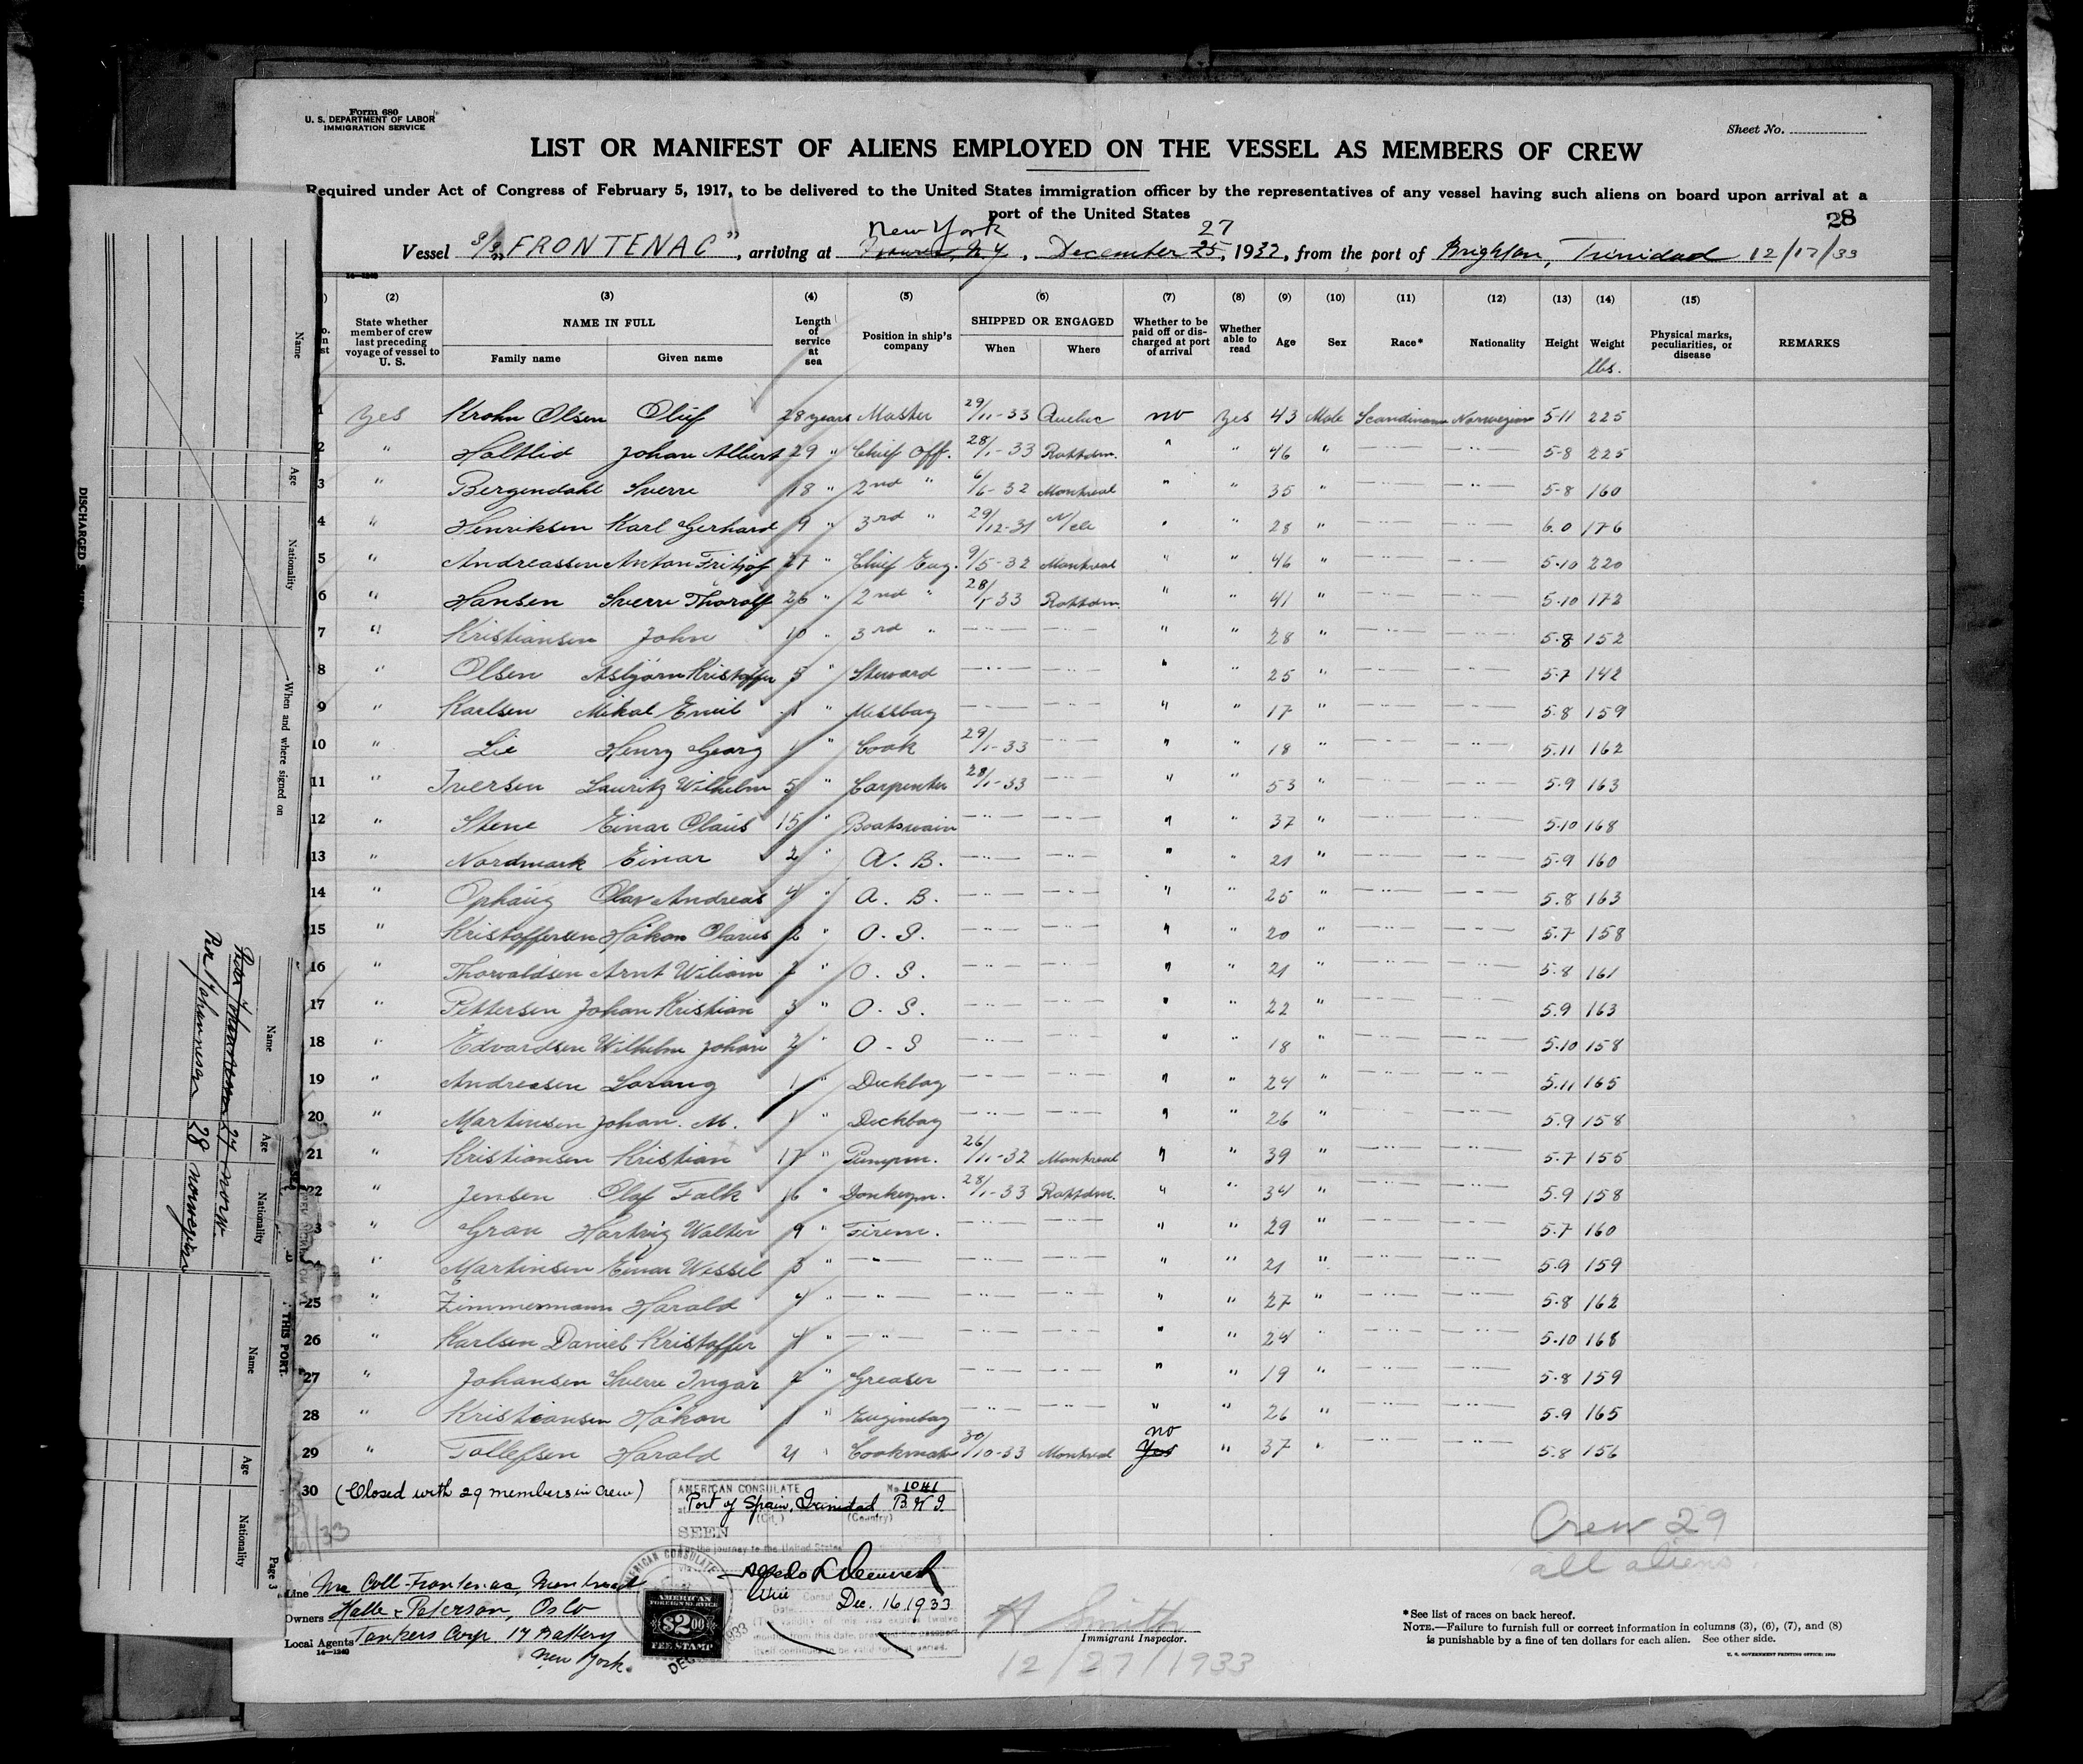 Form 680
U. S. DEPARTMENT OF LABOR
IMMIGRATION SERVICE
Sheet No.
LIST OR MANIFEST OF ALIENS EMPLOYED ON THE VESSEL AS MEMBERS OF CREW
Required under Act of Congress of February 5, 1917, to be delivered to the United States immigration officer by the representatives of any vessel having such aliens on board upon arrival at a
port of the United States
28
New York 27
Vessel S/S „FRONTENAC", arriving at N.Y., December 25, 1932, from the port of Brighton, Trinidad 12/17/33
14—1240
(2) (3) (4) (5) (6) (7) (8) (9) (10) (11) (12) (13) (14) (15)
State whether member of crew last preceding voyage of vessel to U. S. NAME IN FULL Family name Given name Length of service at sea Position in ship's company SHIPPED OR ENGAGED When Where Whether to be paid off or discharged at port of arrival Whether able to read Age Sex Race* Nationality Height Weight lbs. Physical marks, peculiarities, or disease REMARKS
1 Yes Krohn Olsen Oluf 28 years Master 29/11-33 Quebec no Yes 43 Male Scandinavn Norwegian 5-11 225
2 " Haltlid Johan Albert 29 " Chief Off. 28/1-33 Rottdm. " " 46 " —"— —"— 5-8 225
3 " Bergendahl Sverre 18 " 2nd " 6/6-32 Montreal " " 35 " —"— —"— 5-8 160
4 " Henriksen Karl Gerhard 9 " 3rd " 29/12-31 " " 28 " —"— —"— 6.0 176
5 " Andreassen Anton Fritjof 27 " Chief Eng. 9/5-32 Montreal " " 46 " —"— 5-10 220
6 " Hansen Sverre Thorolf 26 " 2nd " 28/1-33 Rottdm. " " 41 " —"— —"— 5-10 172
7 " Kristiansen John 10 " 3rd " —"— —"— " " 28 " —"— —"— 5.8 152
8 " Olsen Asbjørn Kristoffer 5 " Steward —"— —"— " " 25 " —"— —"— 5-7 142
9 " Karlsen Mikal Emil 1 " Messboy —"— —"— " " 17 " —"— —"— 5-8 159
10 " Lie Henry Georg 1 " Cook 29/1-33 —"— " " 18 " —"— —"— 5.11 162
11 " Iversen Lauritz Wilhelm 5 " Carpenter 28/1-33 —"— " " 53 " —"— —"— 5.9 163
12 " Stene Einar Olaus 15 " Boatswain —"— —"— " " 37 " —"— —"— 5-10 168
13 " Nordmark Einar 2 " A. B. —"— —"— " " 21 " —"— —"— 5-9 160
14 " Ophaug Olav Andreas 4 " A. B. —"— —"— " " 25 " —"— —"— 5.8 163
15 " Kristoffersen Håkon Olaus 2 " O. S. —"— —"— " " 20 " —"— —"— 5.7 158
16 " Thorvaldsen Arnt Wiliam 2 " O. S. —"— —"— " " 21 " —"— —"— 5-8 161
17 " Pettersen Johan Kristian 3 " O. S. —"— —"— " " 22 " —"— —"— 5.9 163
18 " Edvardsen Wilhelm Johan 2 " O - S —"— —"— " " 18 " —"— —"— 5-10 158
19 " Andreasen Lorang 1 " Deckboy —"— —"— " " 24 " —"— —"— 5.11 165
20 " Martinsen Johan. M. 1 " Deckboy —"— —"— " " 26 " —"— —"— 5.9 158
21 " Kristiansen Kristian 17 " Pumpm. 26/11-32 Montreal " " 39 " —"— —"— 5.7 155
22 " Jensen Olaf Falk 16 " Donkeym. 28/1-33 Rottdm. " " 34 " —"— —"— 5.9 158
23 " Gran Hartvig Walter 9 " Firem. —"— —"— " " 29 " —"— —"— 5.7 160
24 " Martinsen Einar Wessel 3 " —"— —"— —"— " " 21 " —"— —"— 5-9 159
25 " Zimmermann Harald 4 " —"— —"— —"— " " 27 " —"— —"— 5-8 162
26 " Karlsen Daniel Kristoffer 4 " —"— —"— —"— " " 24 " —"— —"— 5-10 168
27 " Johansen Sverre Ingar 2 " Greaser —"— —"— " " 19 " —"— —"— 5-8 159
28 " Kristiansen Håkon 1 " Engineboy —"— —"— " " 26 " —"— —"— 5.9 165
29 " Tollefsen Harald 21 " Cookmate 30/10-33 Montreal Yes no " 37 " —"— —"— 5.8 156
30 (Closed with 29 members in crew)
Crew 29
all aliens
AMERICAN CONSULATE No 1041
at Port of Spain, Trinidad B.W.I.
(City) (Country)
SEEN
For the journey to the United States
Vice Consul
Date Dec. 16, 1933
(The validity of this visa expires twelve
months from this date, provided the passport
itself continues to be valid for that period.
AMERICAN CONSULATE
AMERICAN
FOREIGN SERVICE
$2.00
FEE STAMP
DEC 1933
Line Montreal
Owners Halle & Peterson, Oslo
Local Agents Tankers Corp 17 Battery
New York.
14—1240
H Smith
Immigrant Inspector.
12/27/1933
*See list of races on back hereof.
NOTE.—Failure to furnish full or correct information in columns (3), (6), (7), and (8)
is punishable by a fine of ten dollars for each alien. See other side.
U. S. GOVERNMENT PRINTING OFFICE: 1930
Name
Age
Nationality
When and where signed on
DISCHARGED
Name
Age
Nationality
Per Johannesen 28 norwegian
27 norw.
THIS PORT.
Name
Age
Nationality
Page 3